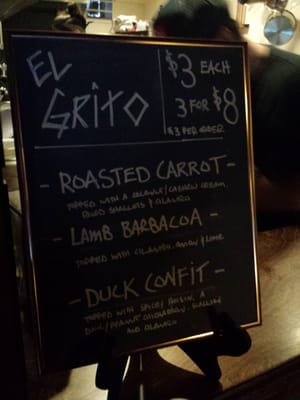 EL GRITO
$3 EACH
3 FOR $8
$3 PER ORDER
- ROASTED CARROT -
TOPPED WITH A CASHEW CREAM,
FRIED SHALLOTS & CILANTRO
- LAMB BARBACOA -
TOPPED WITH CILANTRO, ONION & LIME
- DUCK CONFIT -
TOPPED WITH SPICY RAISIN, A
PEANUT
AND CILANTRO